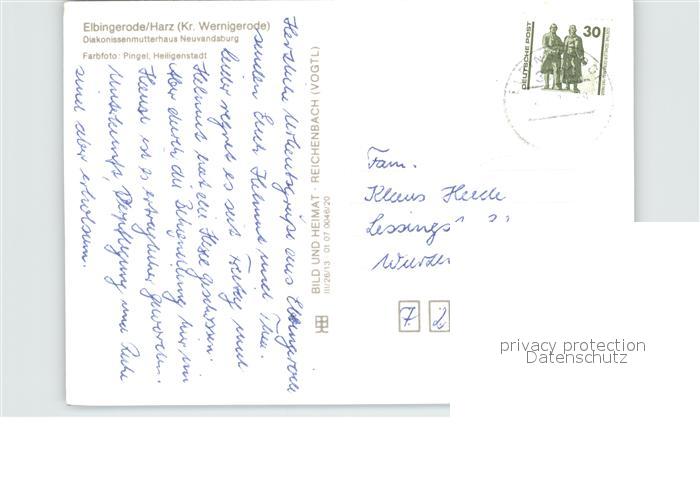 Elbingerode/Harz (Kr. Wernigerode)
Diakonissenmutterhaus Neuvandsburg
Farbfoto: Pingel, Heiligenstadt
Herzliche Urlaubsgrüße aus Elbingerode
senden Euch Helmut und Thea.
Leider regnet es seit Freitag und
Helmut hat die Hexe geschossen.
Aber durch die Behandlung hier im
Hause ist es erträglicher geworden.
Unterkunft, Verpflegung und Ruhe
sind aber erholsam.
BILD UND HEIMAT · REICHENBACH (VOGTL)
III/26/13 01 07 0046/20
DEUTSCHE POST
30
Fam.
Klaus Heede
Lessings
Wurzen
7 2
privacy protection
Datenschutz